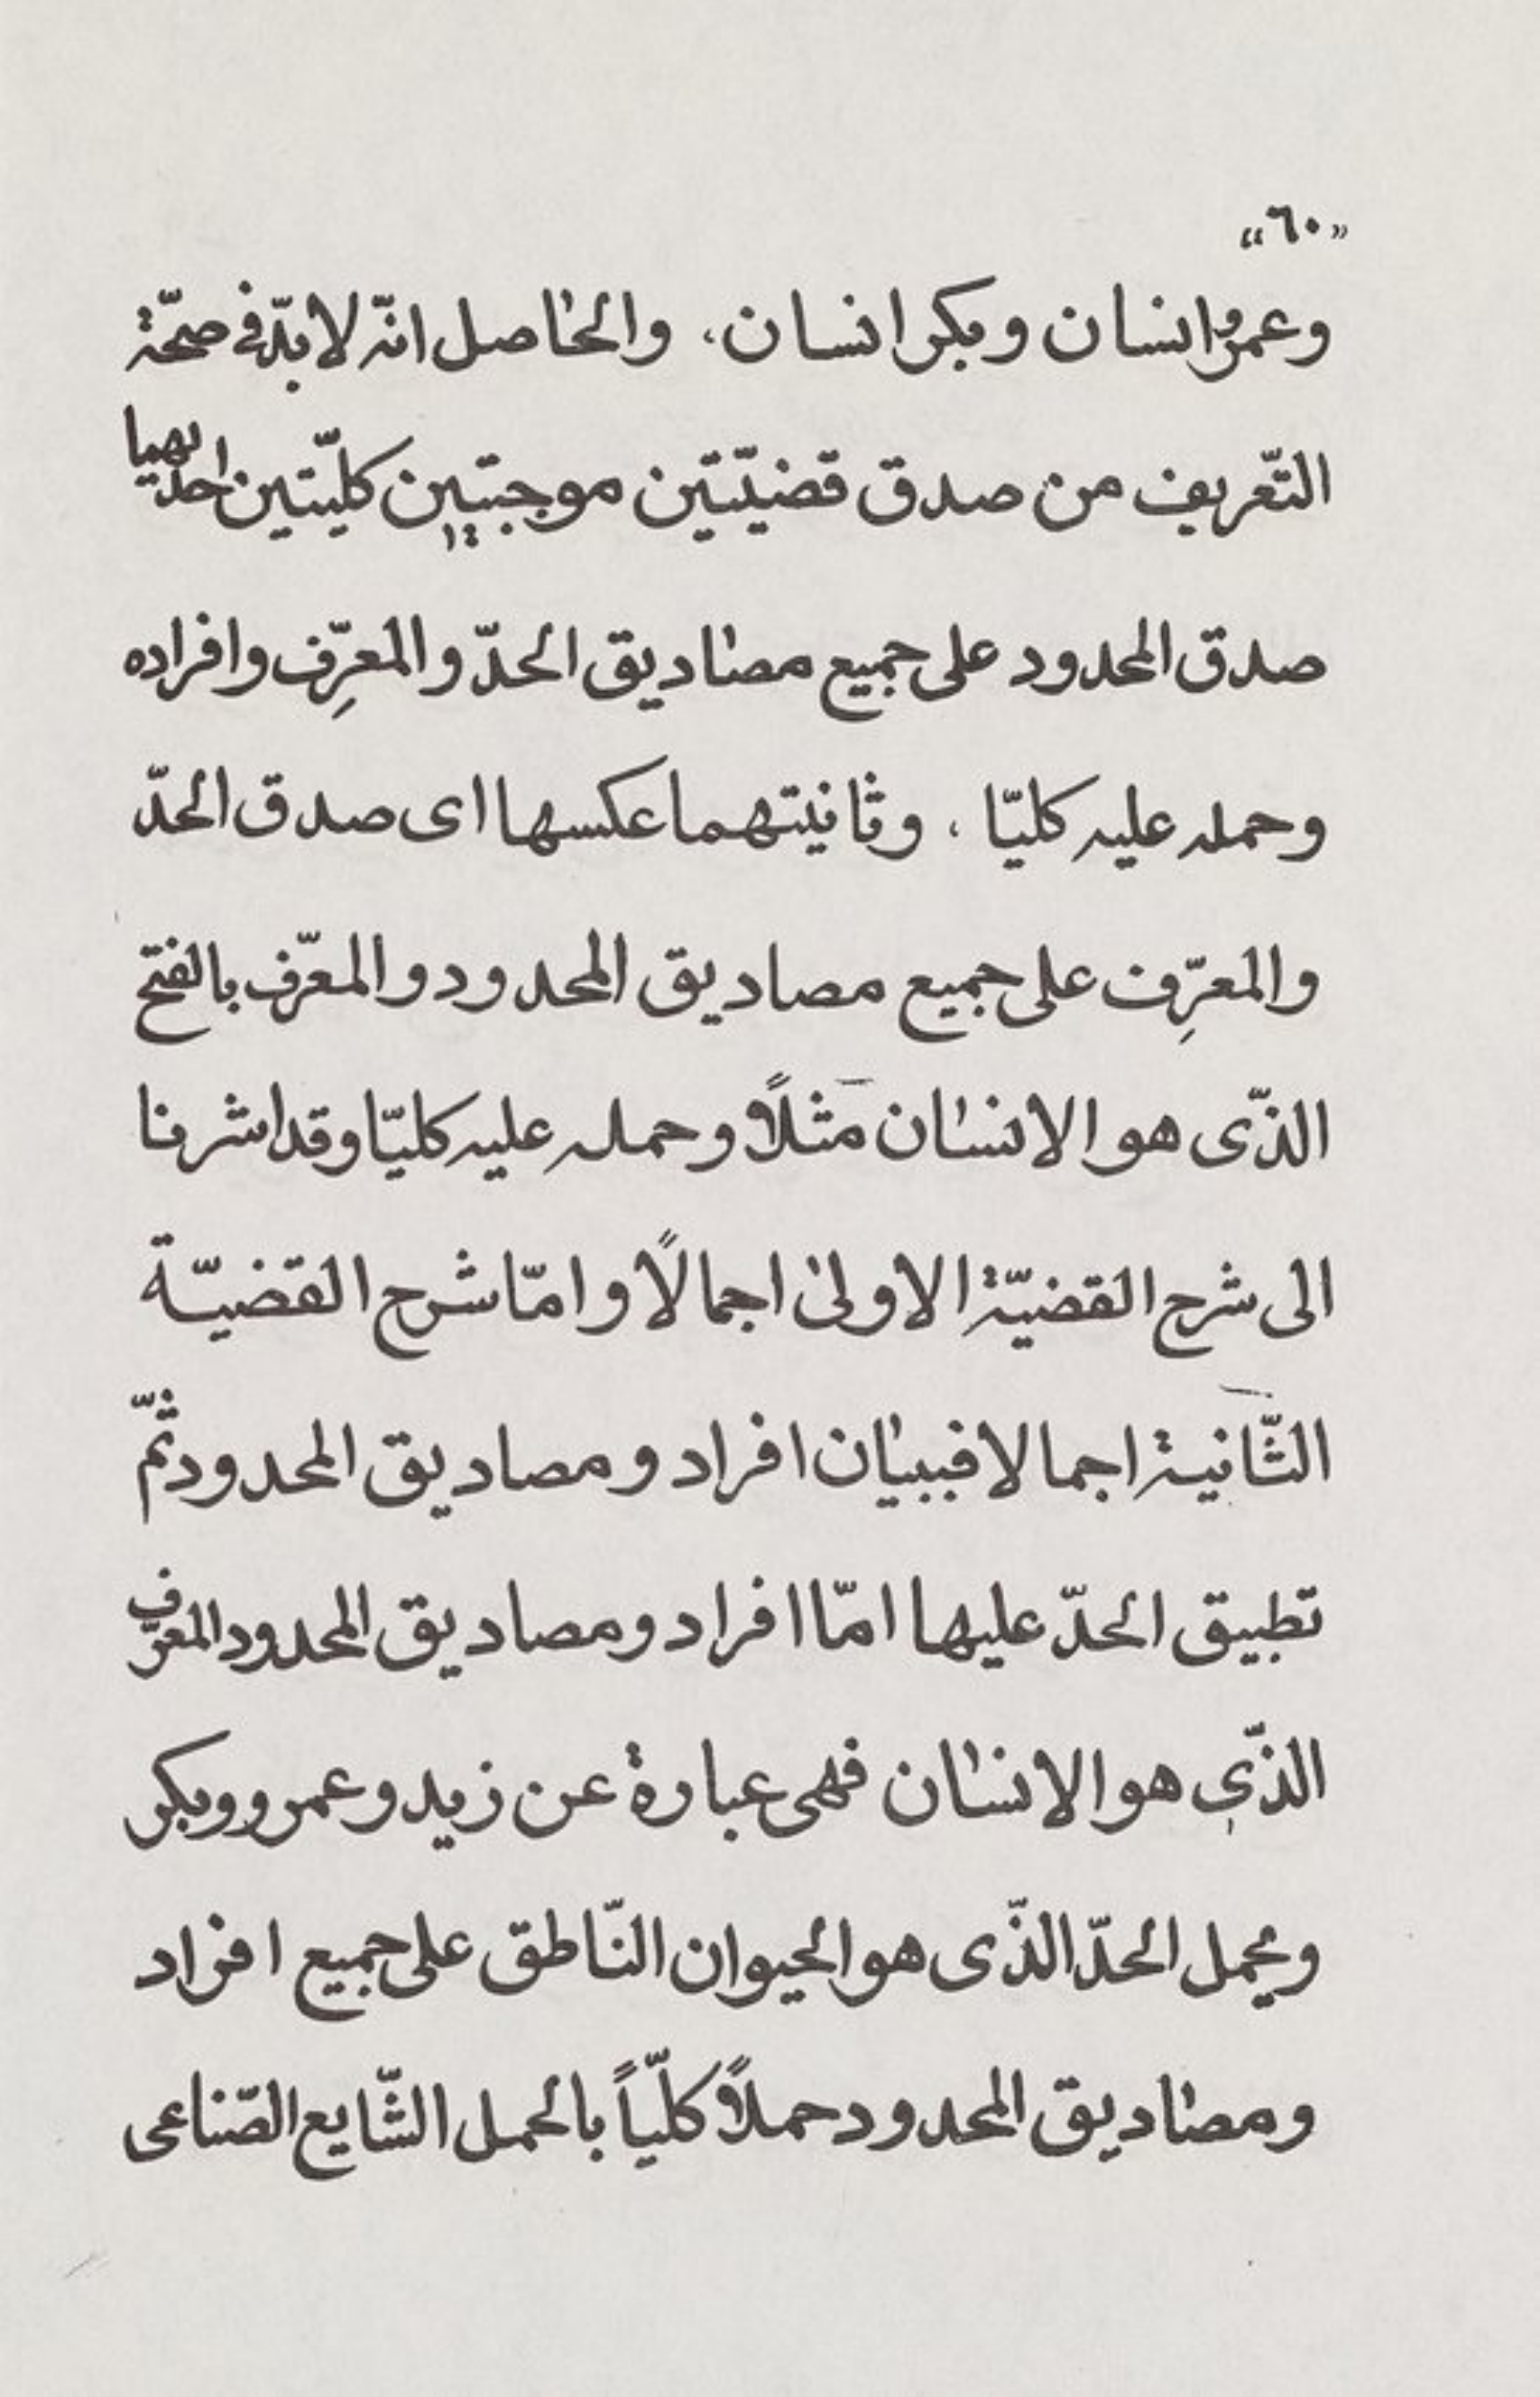 «٦٠»
وعمرو انسان وبكر انسان، والحاصل انّه لا بدّ في صحّة
التّعريف من صدق قضيّتين موجبتين كليّتين احديهما
صدق المحدود على جميع مصاديق الحدّ والمعرِّف وافراده
وحمله عليه كليّا، وثانيتهما عكسها اى صدق الحدّ
والمعرِّف على جميع مصاديق المحدود والمعرّف بالفتح
الذّى هو الانسان مثلاً وحمله عليه كليّا وقد اشرنا
الى شرح القضيّة الاولى اجمالاً وامّا شرح القضيّة
الثّانية اجمالا فببيان افراد ومصاديق المحدود ثمّ
تطبيق الحدّ عليها امّا افراد ومصاديق المحدود المعرّف
الذّي هو الانسان فهى عبارة عن زيد وعمرو وبكر
ويحمل الحدّ الذّى هو الحيوان النّاطق على جميع افراد
ومصاديق المحدود حملاً كلّياً بالحمل الشّايع الصّناعى